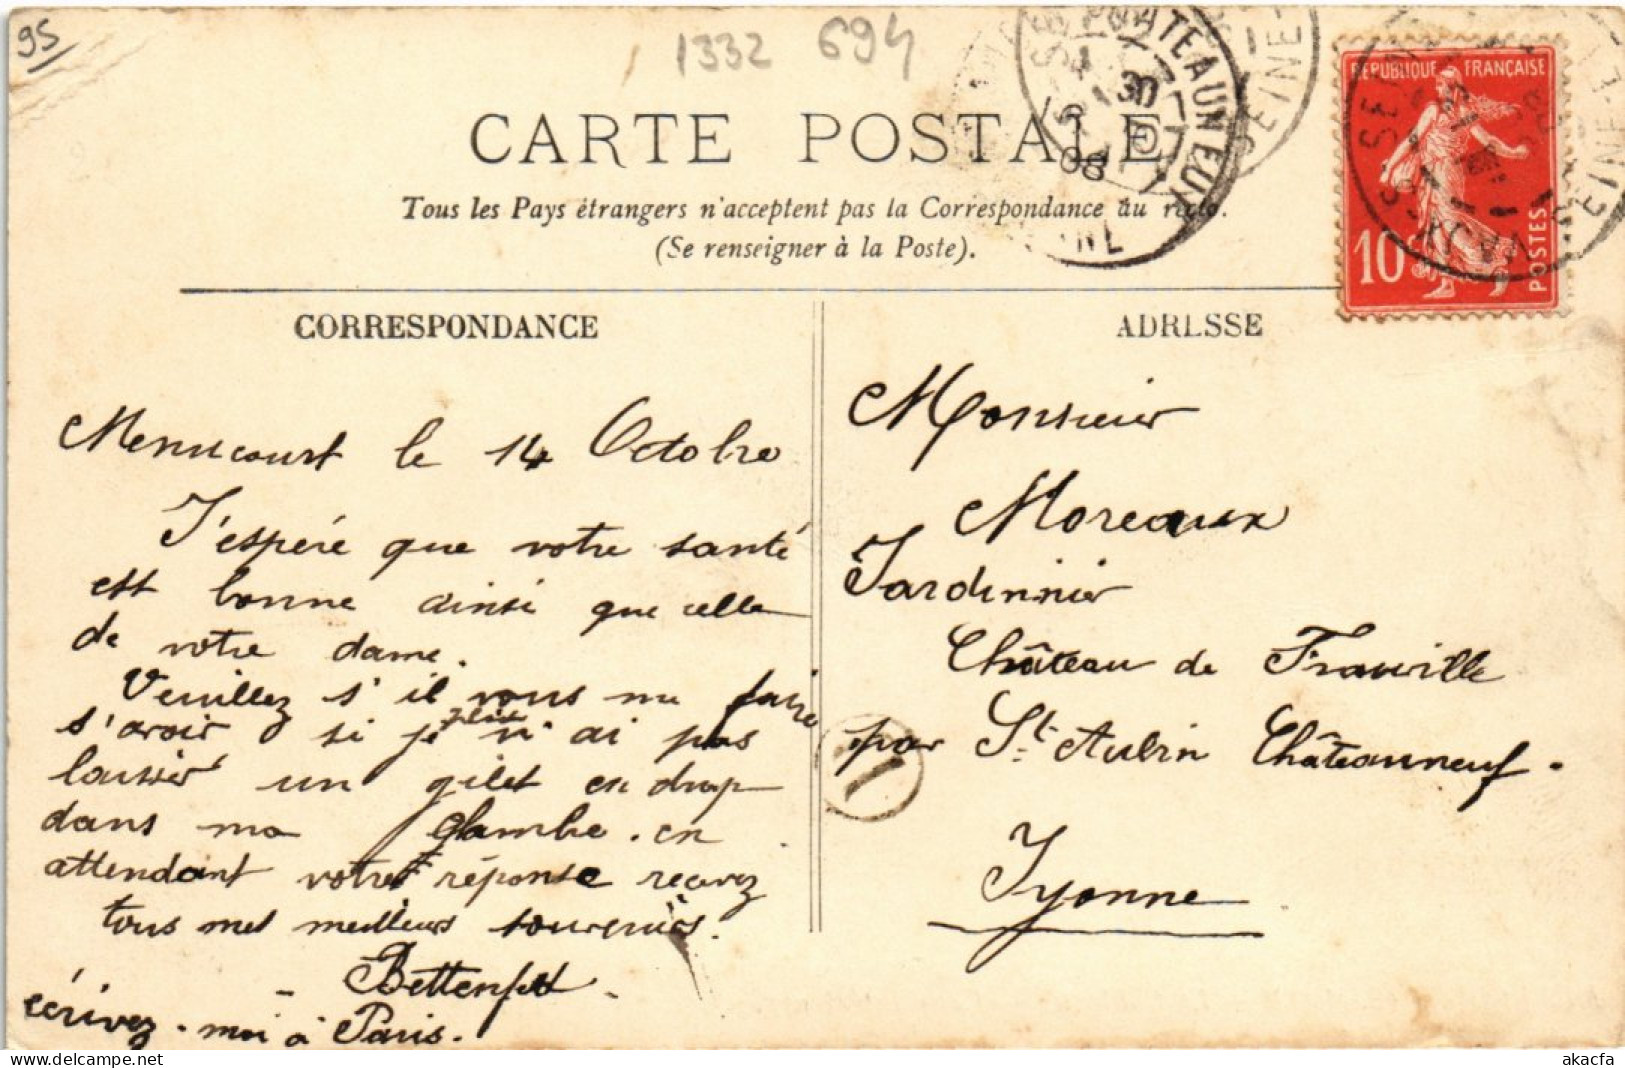 95
1332 694
CARTE POSTALE
Tous les Pays étrangers n'acceptent pas la Correspondance au recto.
(Se renseigner à la Poste).
CHATEAUNEUF
08
SEINE
VAUX S SEINE
REPUBLIQUE FRANÇAISE
10
POSTES
CORRESPONDANCE
Menucourt le 14 Octobre
J'espére que votre santé
est bonne ainsi que celle
de votre dame.
Veuillez s'il vous me faire
s'avoir si je n'ai pas
laisser un gilet en drap
dans ma chambre. en
attendant votre réponse recevez
tous mes meilleurs souvenirs.
- Bettenfelt -
écrivez-moi à Paris.
ADRESSE
Monsieur
Moreaux
Jardinnier
Château de
par St. Aubin Châteauneuf.
Yyonne
akacfa